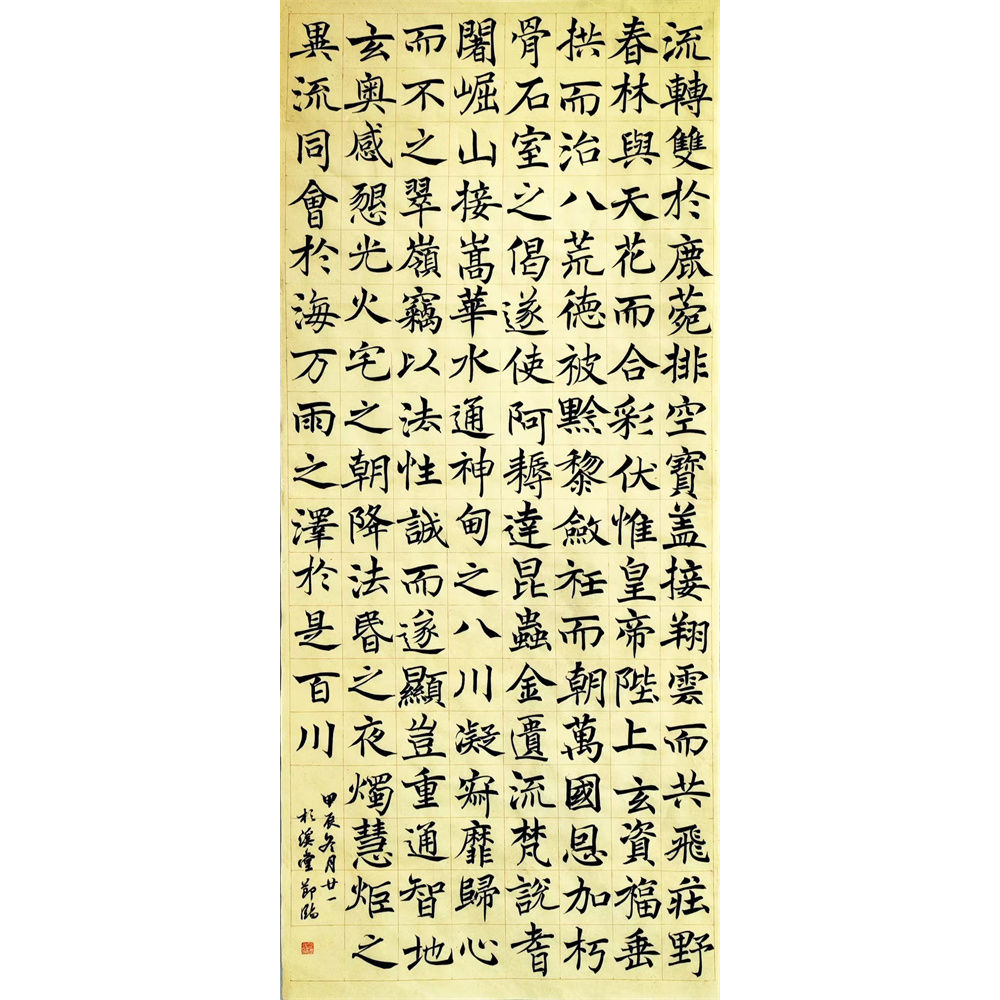 流轉雙於鹿菀排空寶盖接翔雲而共飛莊野
春林與天花而合彩伏惟皇帝陛上玄資福垂
拱而治八荒德被黔黎斂衽而朝萬國恩加朽
骨石室之偈遂使阿耨達昆蟲金匱流梵說耆
闍崛山接嵩華水通神甸之八川凝寂靡歸心
而不之翠嶺竊以法性誠而遂顯豈重通智地
玄奧感懇光火宅之朝降法昬之夜燭慧炬之
異流同會於海万雨之澤於是百川
甲辰冬月廿一
於溪堂節臨